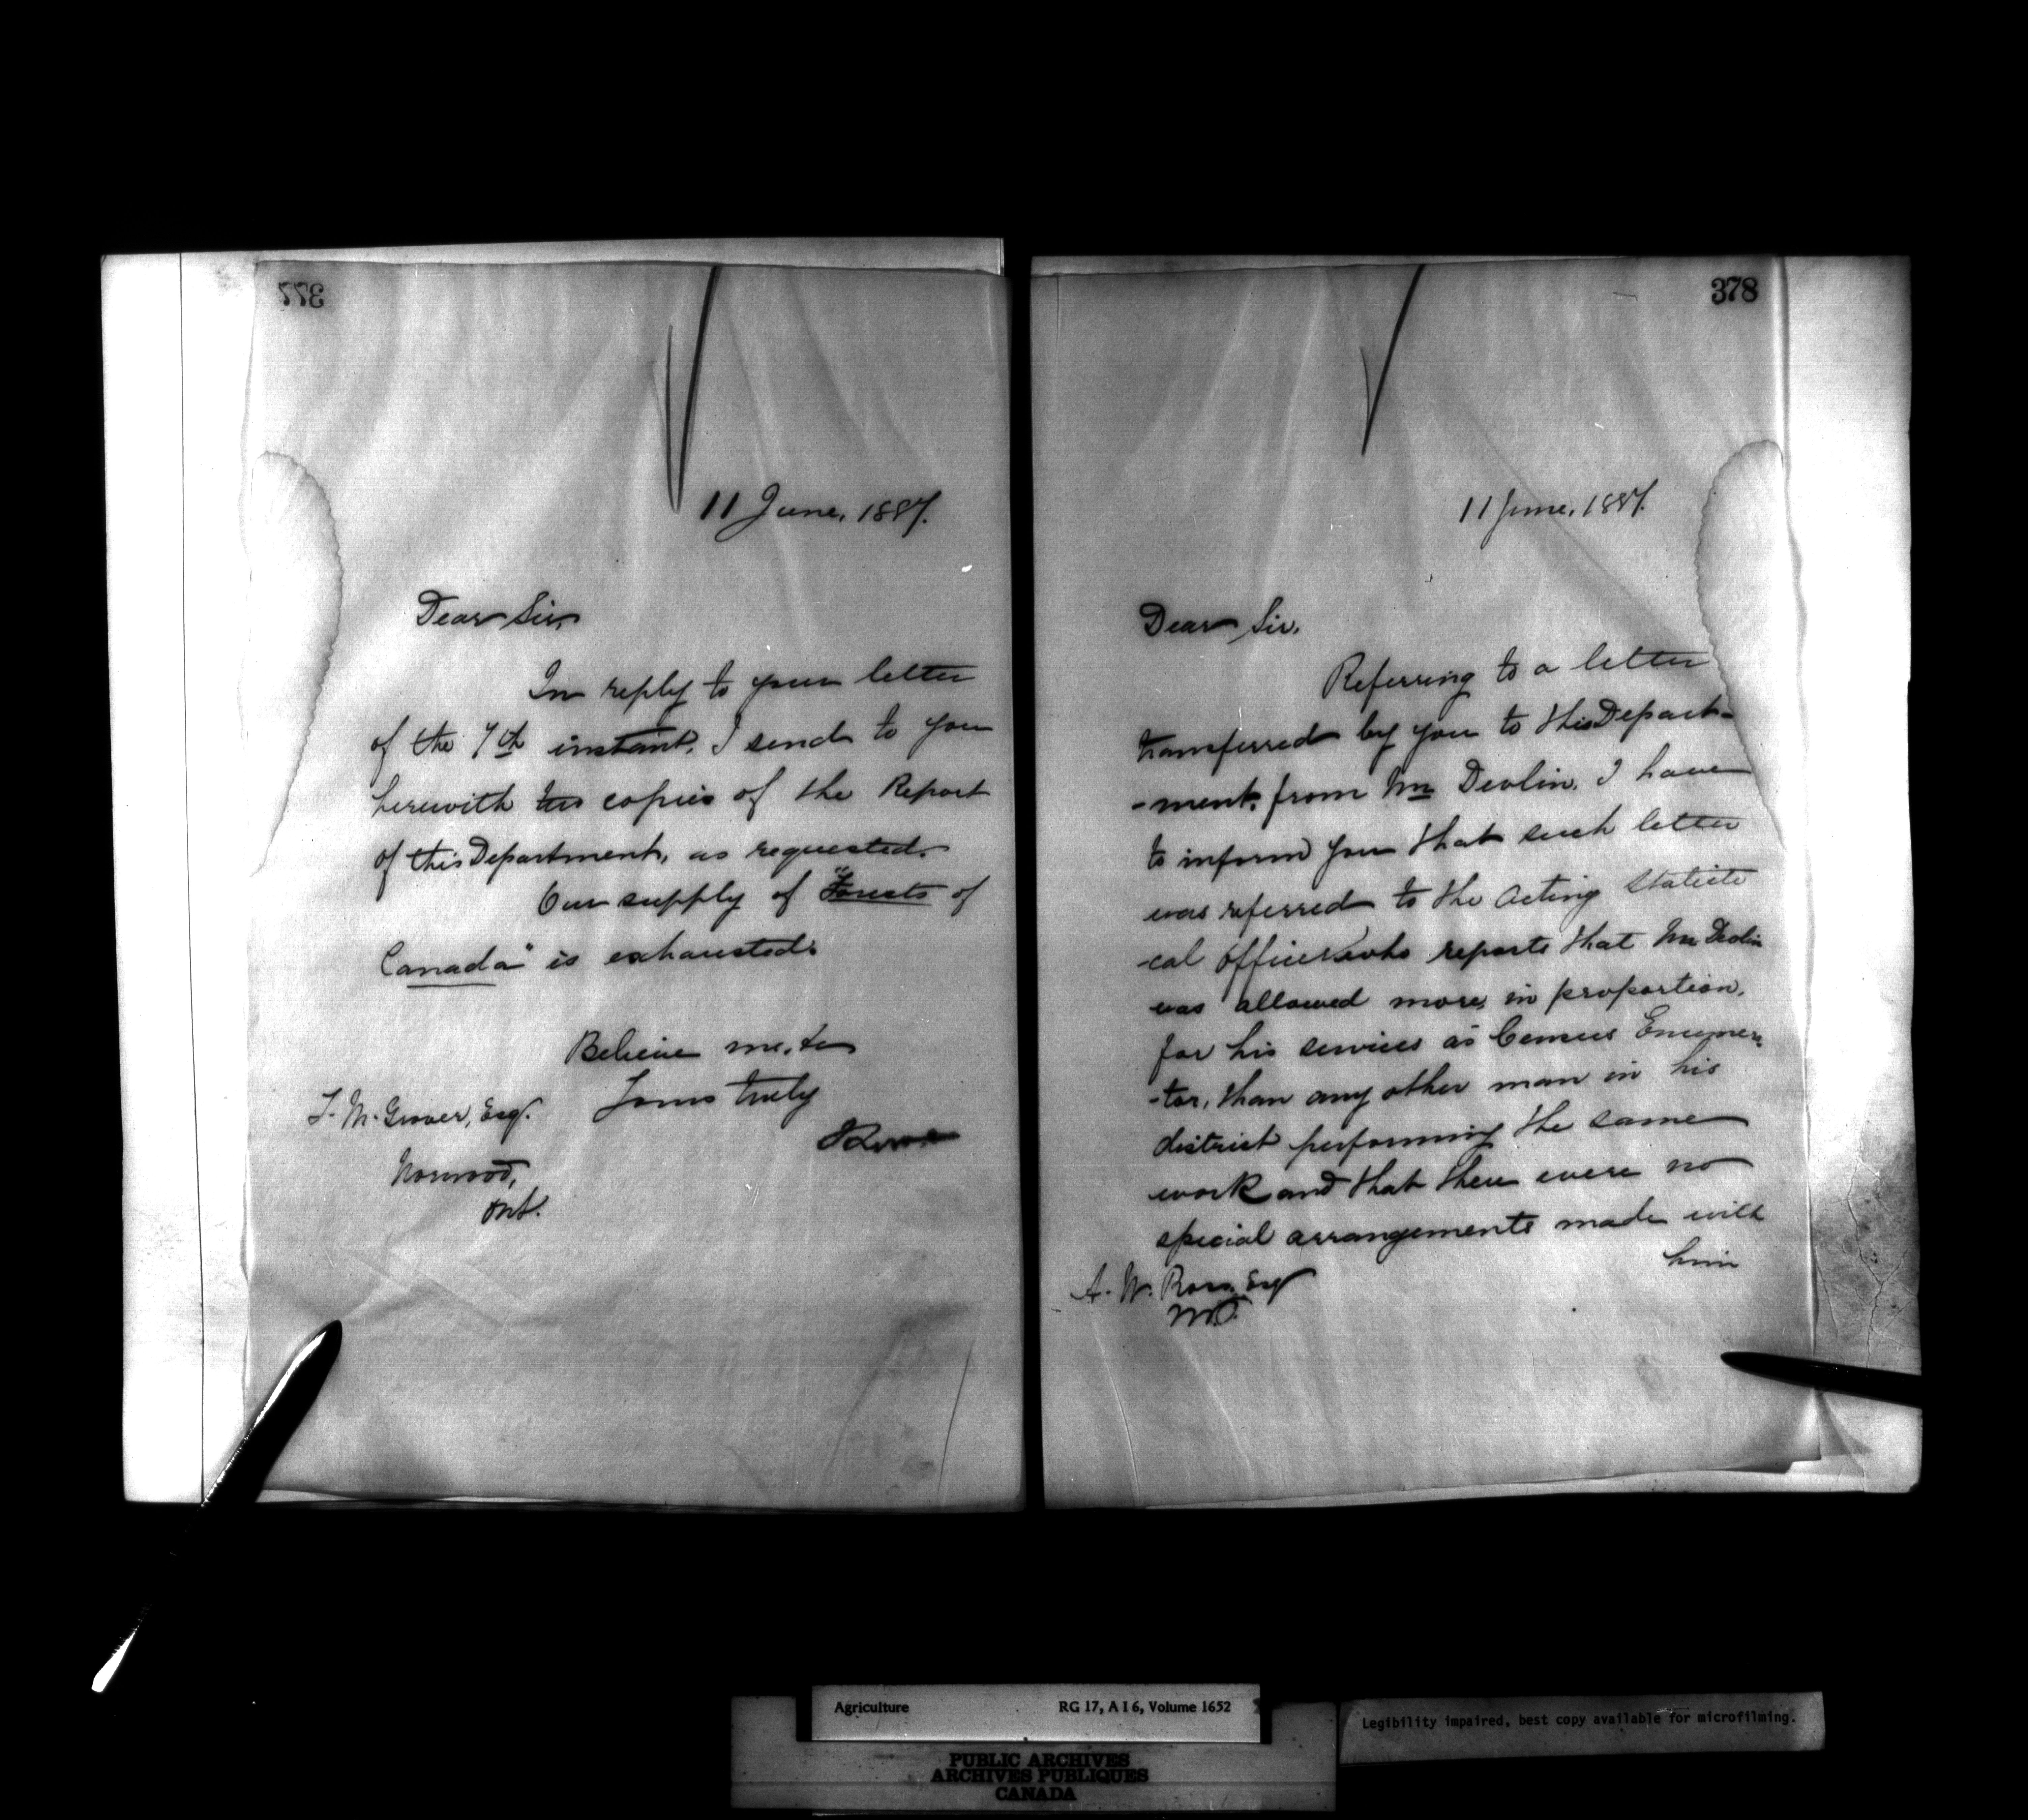 377
11 June, 1887.
Dear Sir,
In reply to your letter
of the 7th instant, I send to you
herewith two copies of the Report
of this Department, as requested.
Our supply of "Forests of
Canada" is exhausted.
Believe me, to
Yours truly
T. M. Grover, Esq.
Norwood,
Ont.
378
11 June, 1887.
Dear Sir,
Referring to a letter
transferred by you to this Depart-
-ment, from Mr Devlin, I have
to inform you that such letter
was referred to the Acting Statisti
-cal Officer who reports that Mr Devlin
was allowed more, in proportion,
for his services as Census Enumera
-tor, than any other man in his
district performing the same
work and that there were no
special arrangements made with
him
A. W. Ross, Esq
M.P.
Agriculture RG 17, A I 6, Volume 1652
PUBLIC ARCHIVES
ARCHIVES PUBLIQUES
CANADA
Legibility impaired, best copy available for microfilming.